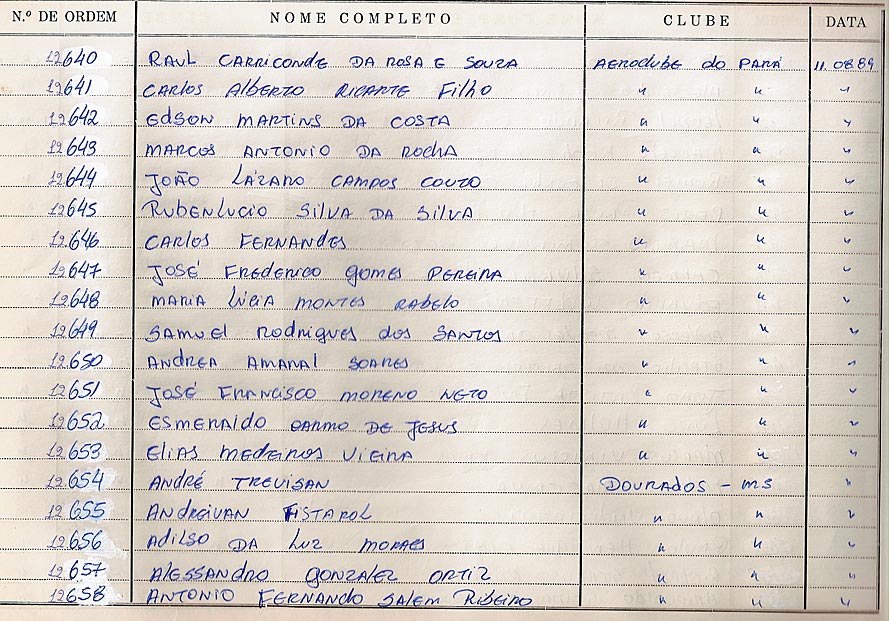 N.º DE ORDEM NOME COMPLETO CLUBE DATA
12640 RAUL CARRICONDE DA ROSA E SOUZA AEROCLUBE do PARÁ 11.08.89
12641 CARLOS ALBERTO RICARTE FILHO " " "
12642 EDSON MARTINS DA COSTA " " "
12643 MARCOS ANTONIO DA ROCHA " " "
12644 JOÃO LÁZARO CAMPOS COUTO " " "
12645 RUBENLUCIO SILVA DA SILVA " " "
12646 CARLOS FERNANDES " " "
12647 JOSÉ FREDERICO GOMES PEREIRA " " "
12648 MARIA LÚCIA MONTES RABELO " " "
12649 SAMUEL RODRIGUES DOS SANTOS " " "
12650 ANDREA AMARAL SOARES " " "
12651 JOSÉ FRANCISCO MORENO NETO " " "
12652 ESMERALDO CARMO DE JESUS " " "
12653 ELIAS MEDEIROS VIEIRA " " "
12654 ANDRÉ TREVISAN DOURADOS - MS "
12655 ANDREIVAN FISTAROL " " "
12656 ADILSO DA LUZ MORAES " " "
12657 ALESSANDRO GONZALEZ ORTIZ " " "
12658 ANTONIO FERNANDO SALEM RIBEIRO " " "